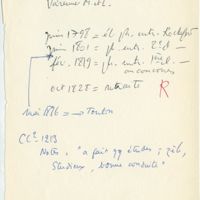 juin 1798 = él ph. entr. Rochefort
juin 1801 = ph. entr. 2e cl —
fév. 1819 = ph. entr. 1ère cl —
au concours
oct 1828 = retraite
R
mai 1816 = → Toulon
CC2-1213
Notes. "a fait qq études; zélé,
Studieux, bonne conduite"